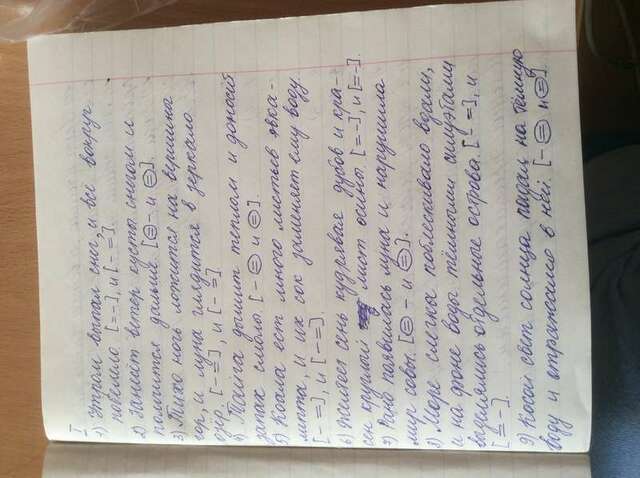 I
1) Утром выпал снег, и всё вокруг
побелело. [= -], и [- =].
2) Заметёт ветер кусты снегом и
помчится дальше [⊜ - и ⊜].
3) Тихо ночь ложится на вершины
гор, и луна глядится в зеркало
озёр. [- =], и [- =]
4) Тайга дышит теплом и доносит
запах смолы. [- ⊜ и ⊜].
5) Коала ест много листьев эвка-
липта, и их сок заменяет ему воду.
[- =], и [- =].
6) Желтеет сень кудрявая дубов и кра-
сен круглый лист осины. [= -], и [= -].
7) Рано появилась луна и нарушила
мир совы. [⊜ - и ⊜].
8) Море слегка поблёскивало вдали,
и на фоне воды тёмными силуэтами
выделялись отдельные острова. [- =], и
[= -].
9) Косой свет солнца падал на тёмную
воду и отражался в ней. [- ⊜ и ⊜]